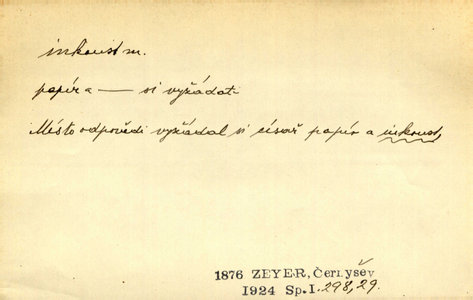 inkoust m.
papír a — si vyžádati
Místo odpovědi vyžádal si císař papír a inkoust,
1876 ZEYER, Černyšev
1924 Sp. I. 298, 29.